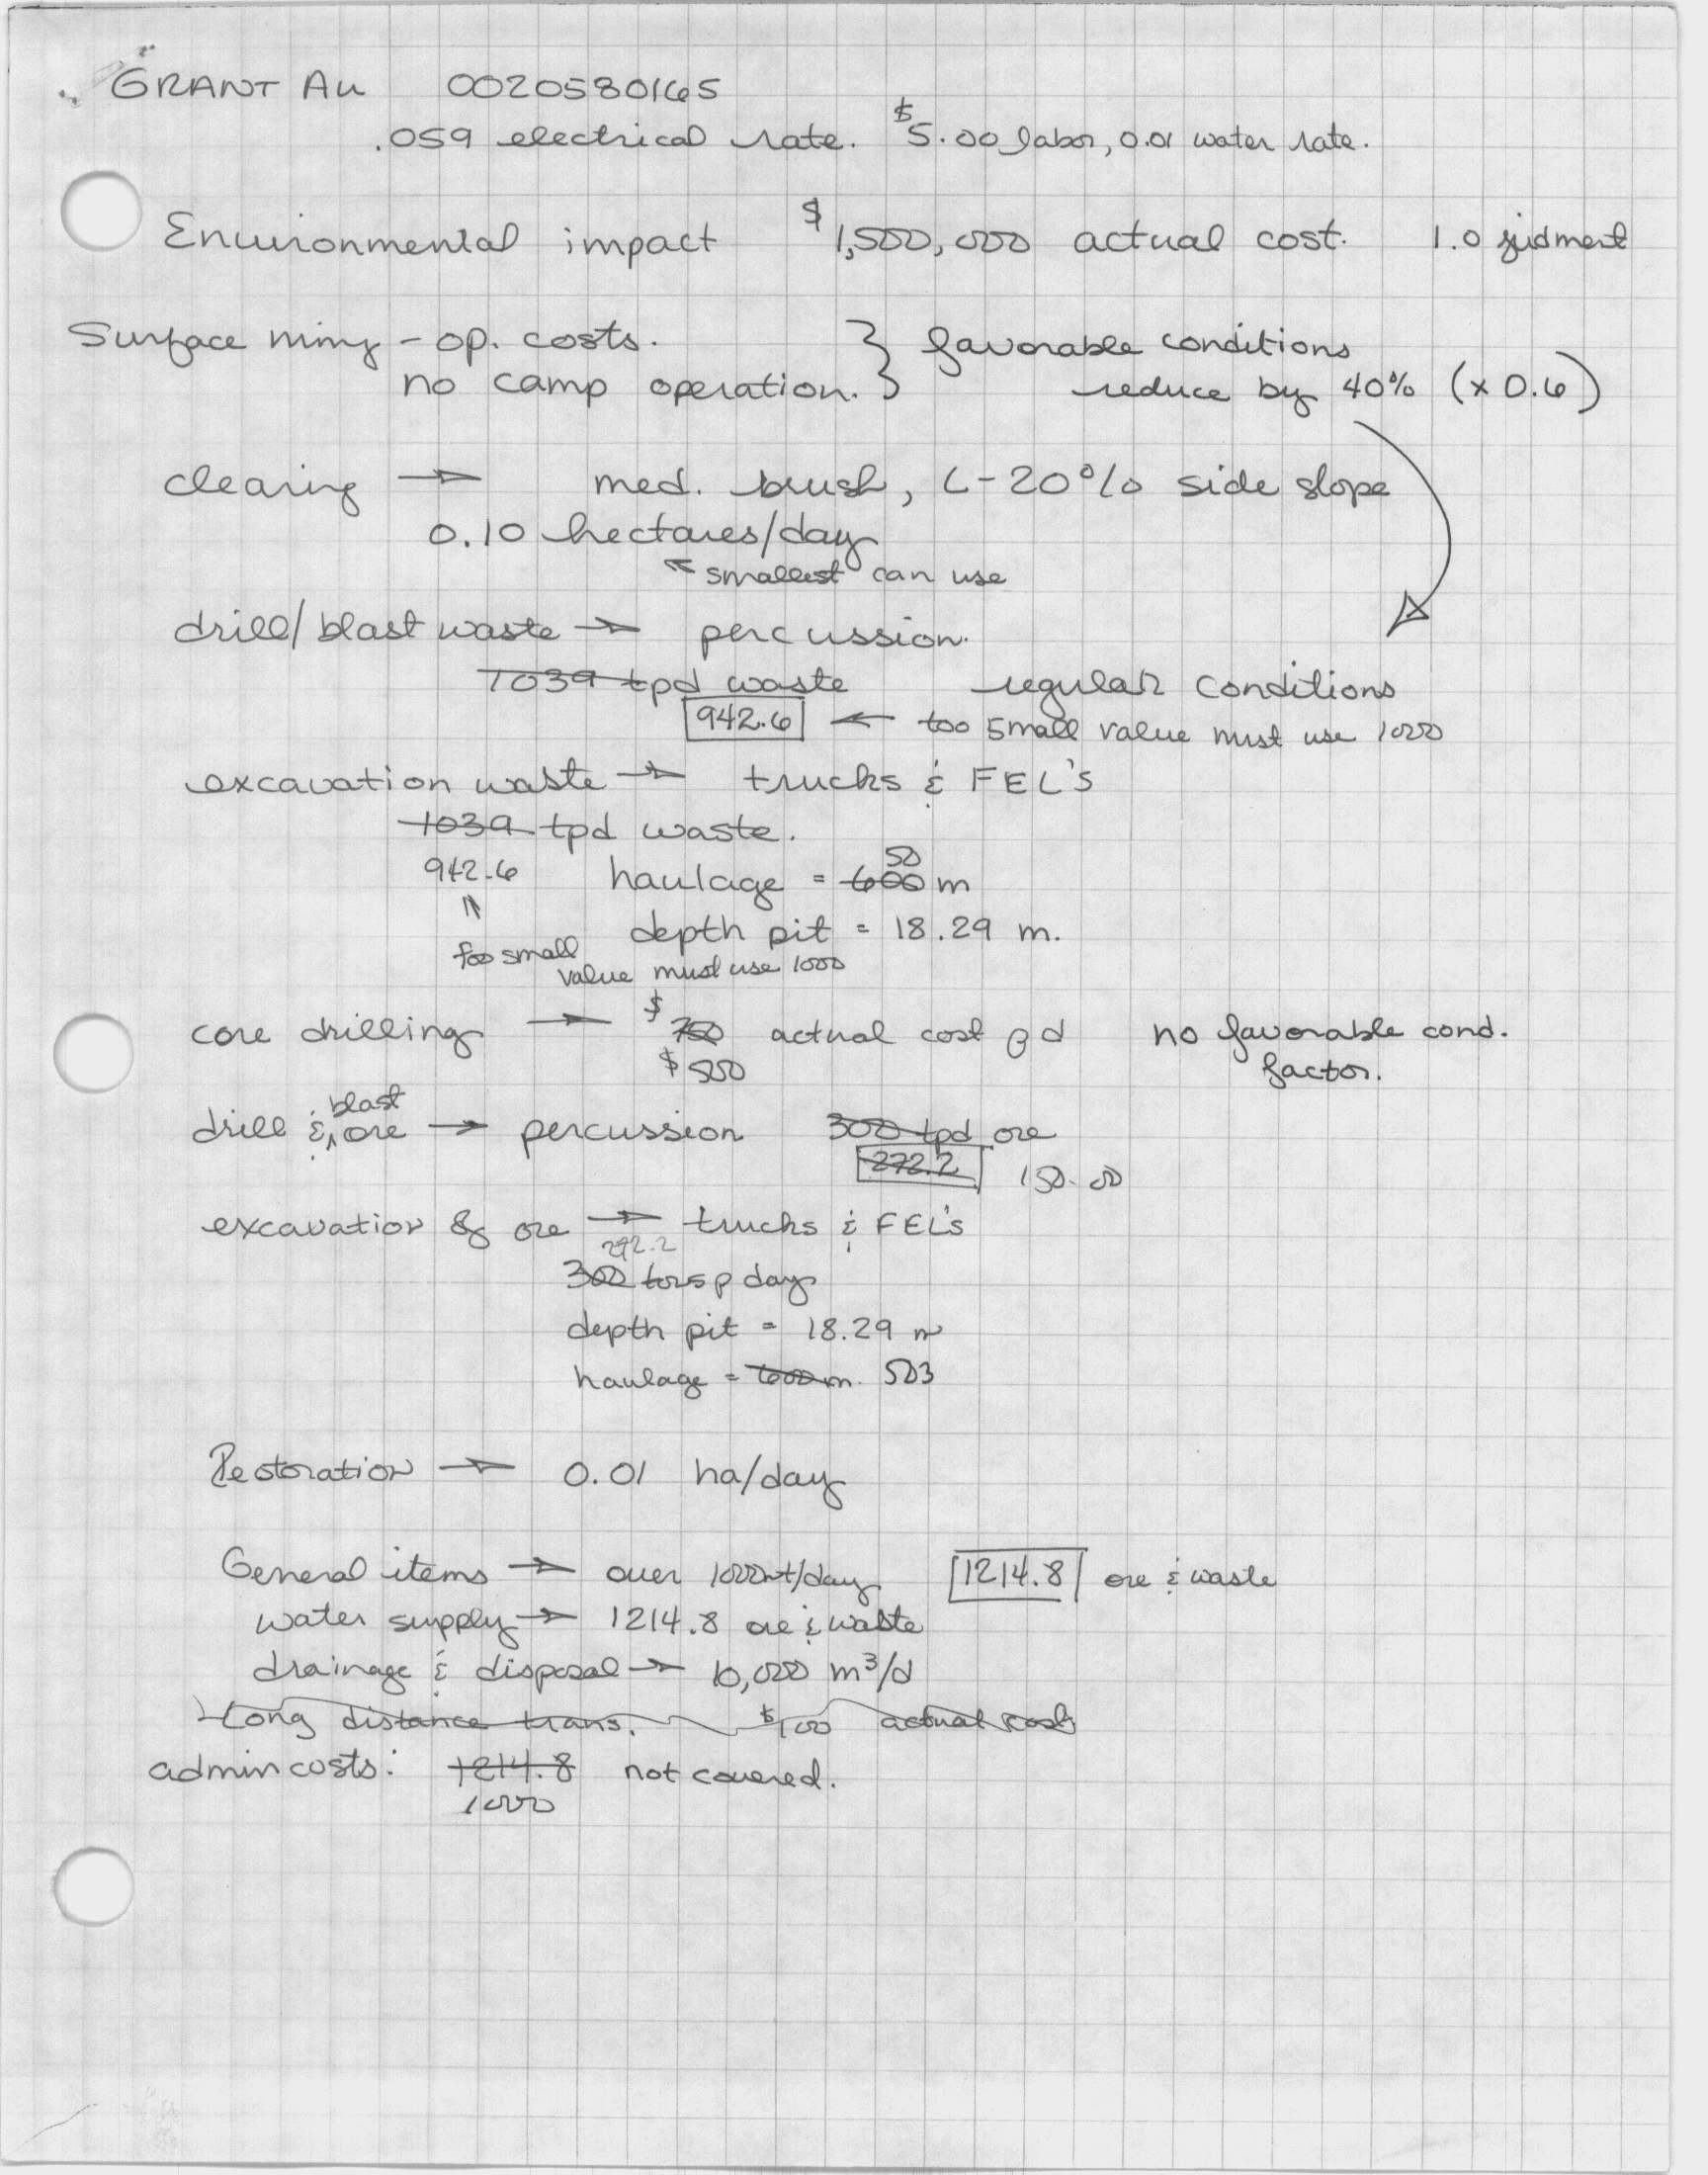 GRANT Au 0020580165
.059 electrical rate. $5.00 labor, 0.01 water rate.
Environmental impact $1,500,000 actual cost. 1.0 judment
Surface minng - op. costs. } favorable conditions
no camp operation. } reduce by 40% (x 0.6)
clearing → med. brush, L-20% side slope
0.10 hectares/day
↖ smallest can use
drill/blast waste → percussion.
1039 tpd waste regular conditions
942.6 ← too small value must use 1000
excavation waste → trucks & FEL's
1039 tpd waste.
50
942.6 haulage = 600 m
⇑ depth pit = 18.29 m.
too small
value must use 1000
core drilling → $750 actual cost pd no favorable cond.
$500 factor.
blast
drill & ore → percussion 300 tpd ore
272.2 150.00
excavation of ore → trucks & FEL's
272.2
300 tons p day
depth pit = 18.29 m
haulage = 600m. 503
Restoration → 0.01 ha/day
General items → over 1000mt/day 1214.8 ore & waste
water supply → 1214.8 ore & waste
drainage & disposal → 10,000 m³/d
Long distance trans. $100 actual cost
admin costs: 1214.8 not covered.
1000